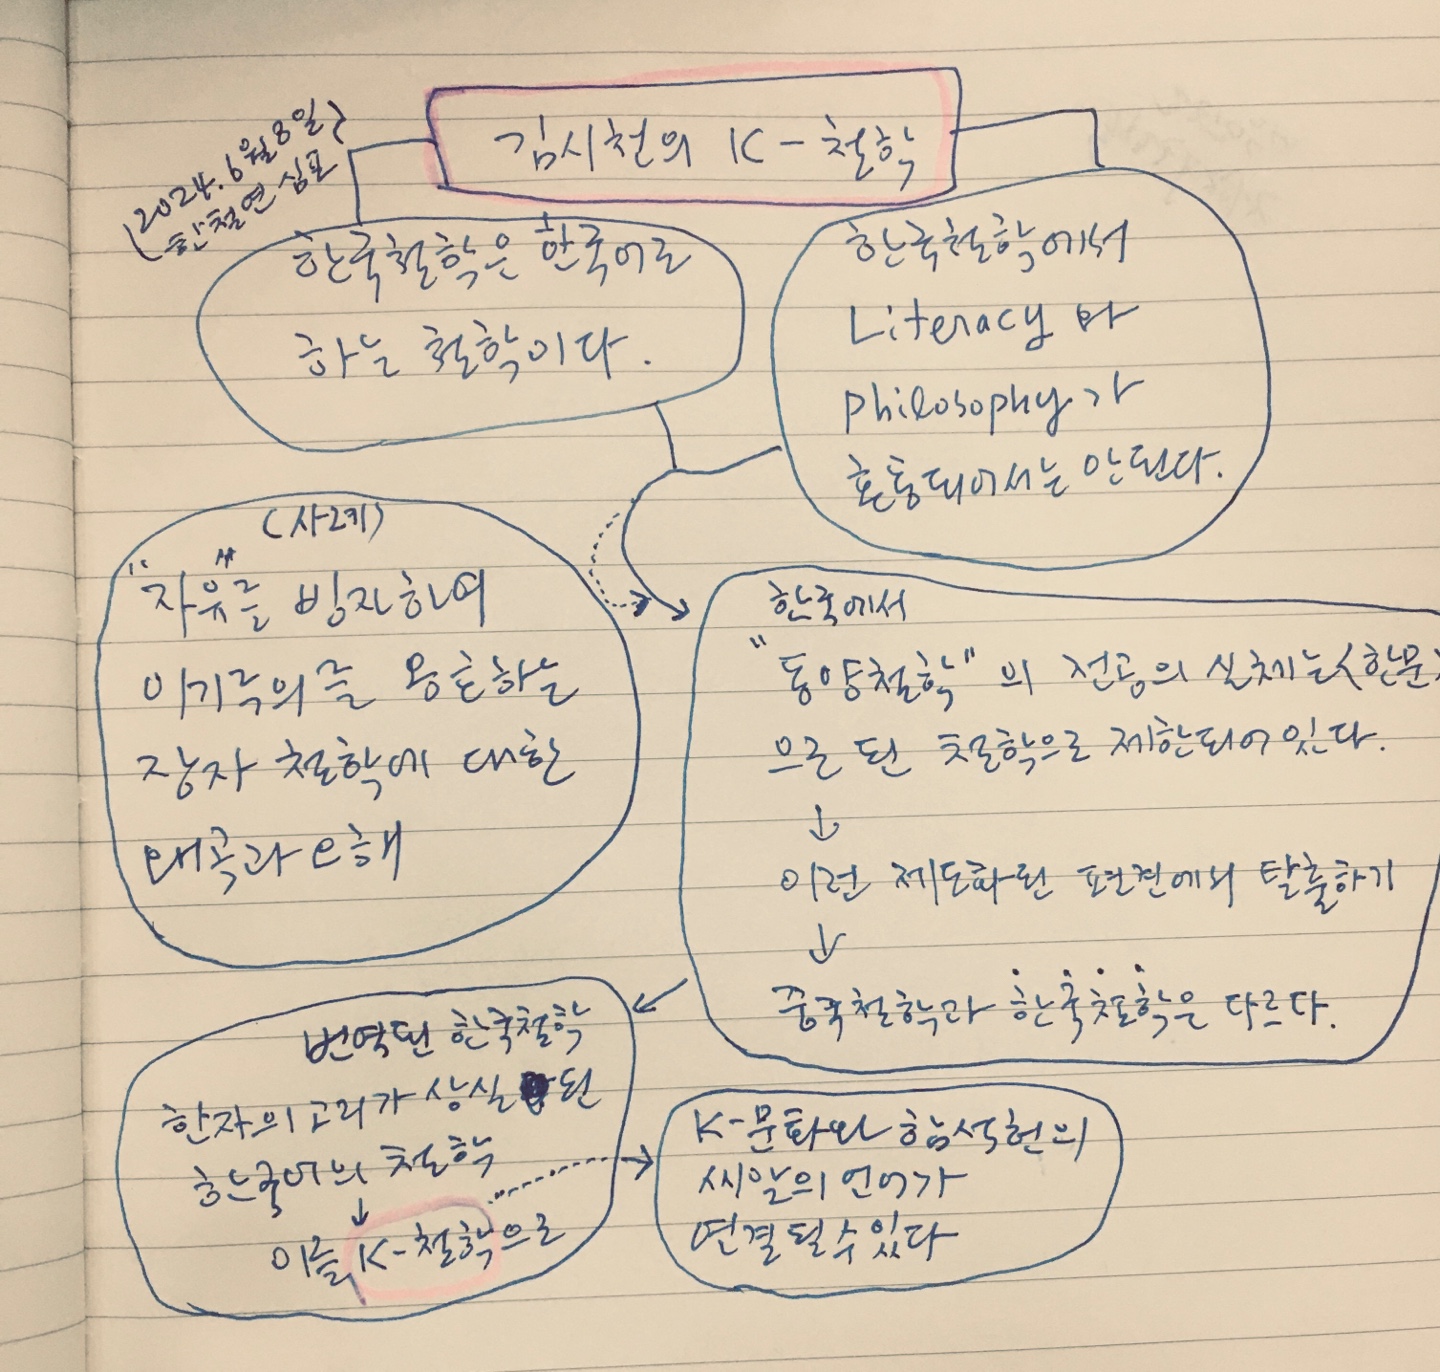 김시천의 K-철학
(2024.6월8일)
한철연 심포
한국철학은 한국어로
하는 철학이다.
한국철학에서
Literacy 와
philosophy가
혼동되어서는 안된다.
(사례)
"자유"를 빙자하여
이기주의를 옹호하는
장자 철학에 대한
왜곡과 오해
한국에서
"동양철학"의 전공의 실체는<한문>
으로 된 철학으로 제한되어 있다.
↓
이런 제도화된 편견에서 탈출하기
↓
중국철학과 한국철학은 다르다.
번역된 한국철학
한자의 고리가 상실된
한국어의 철학
↓
이를 K-철학으로
K-문화와 함석헌의
씨알의 언어가
연결될 수 있다